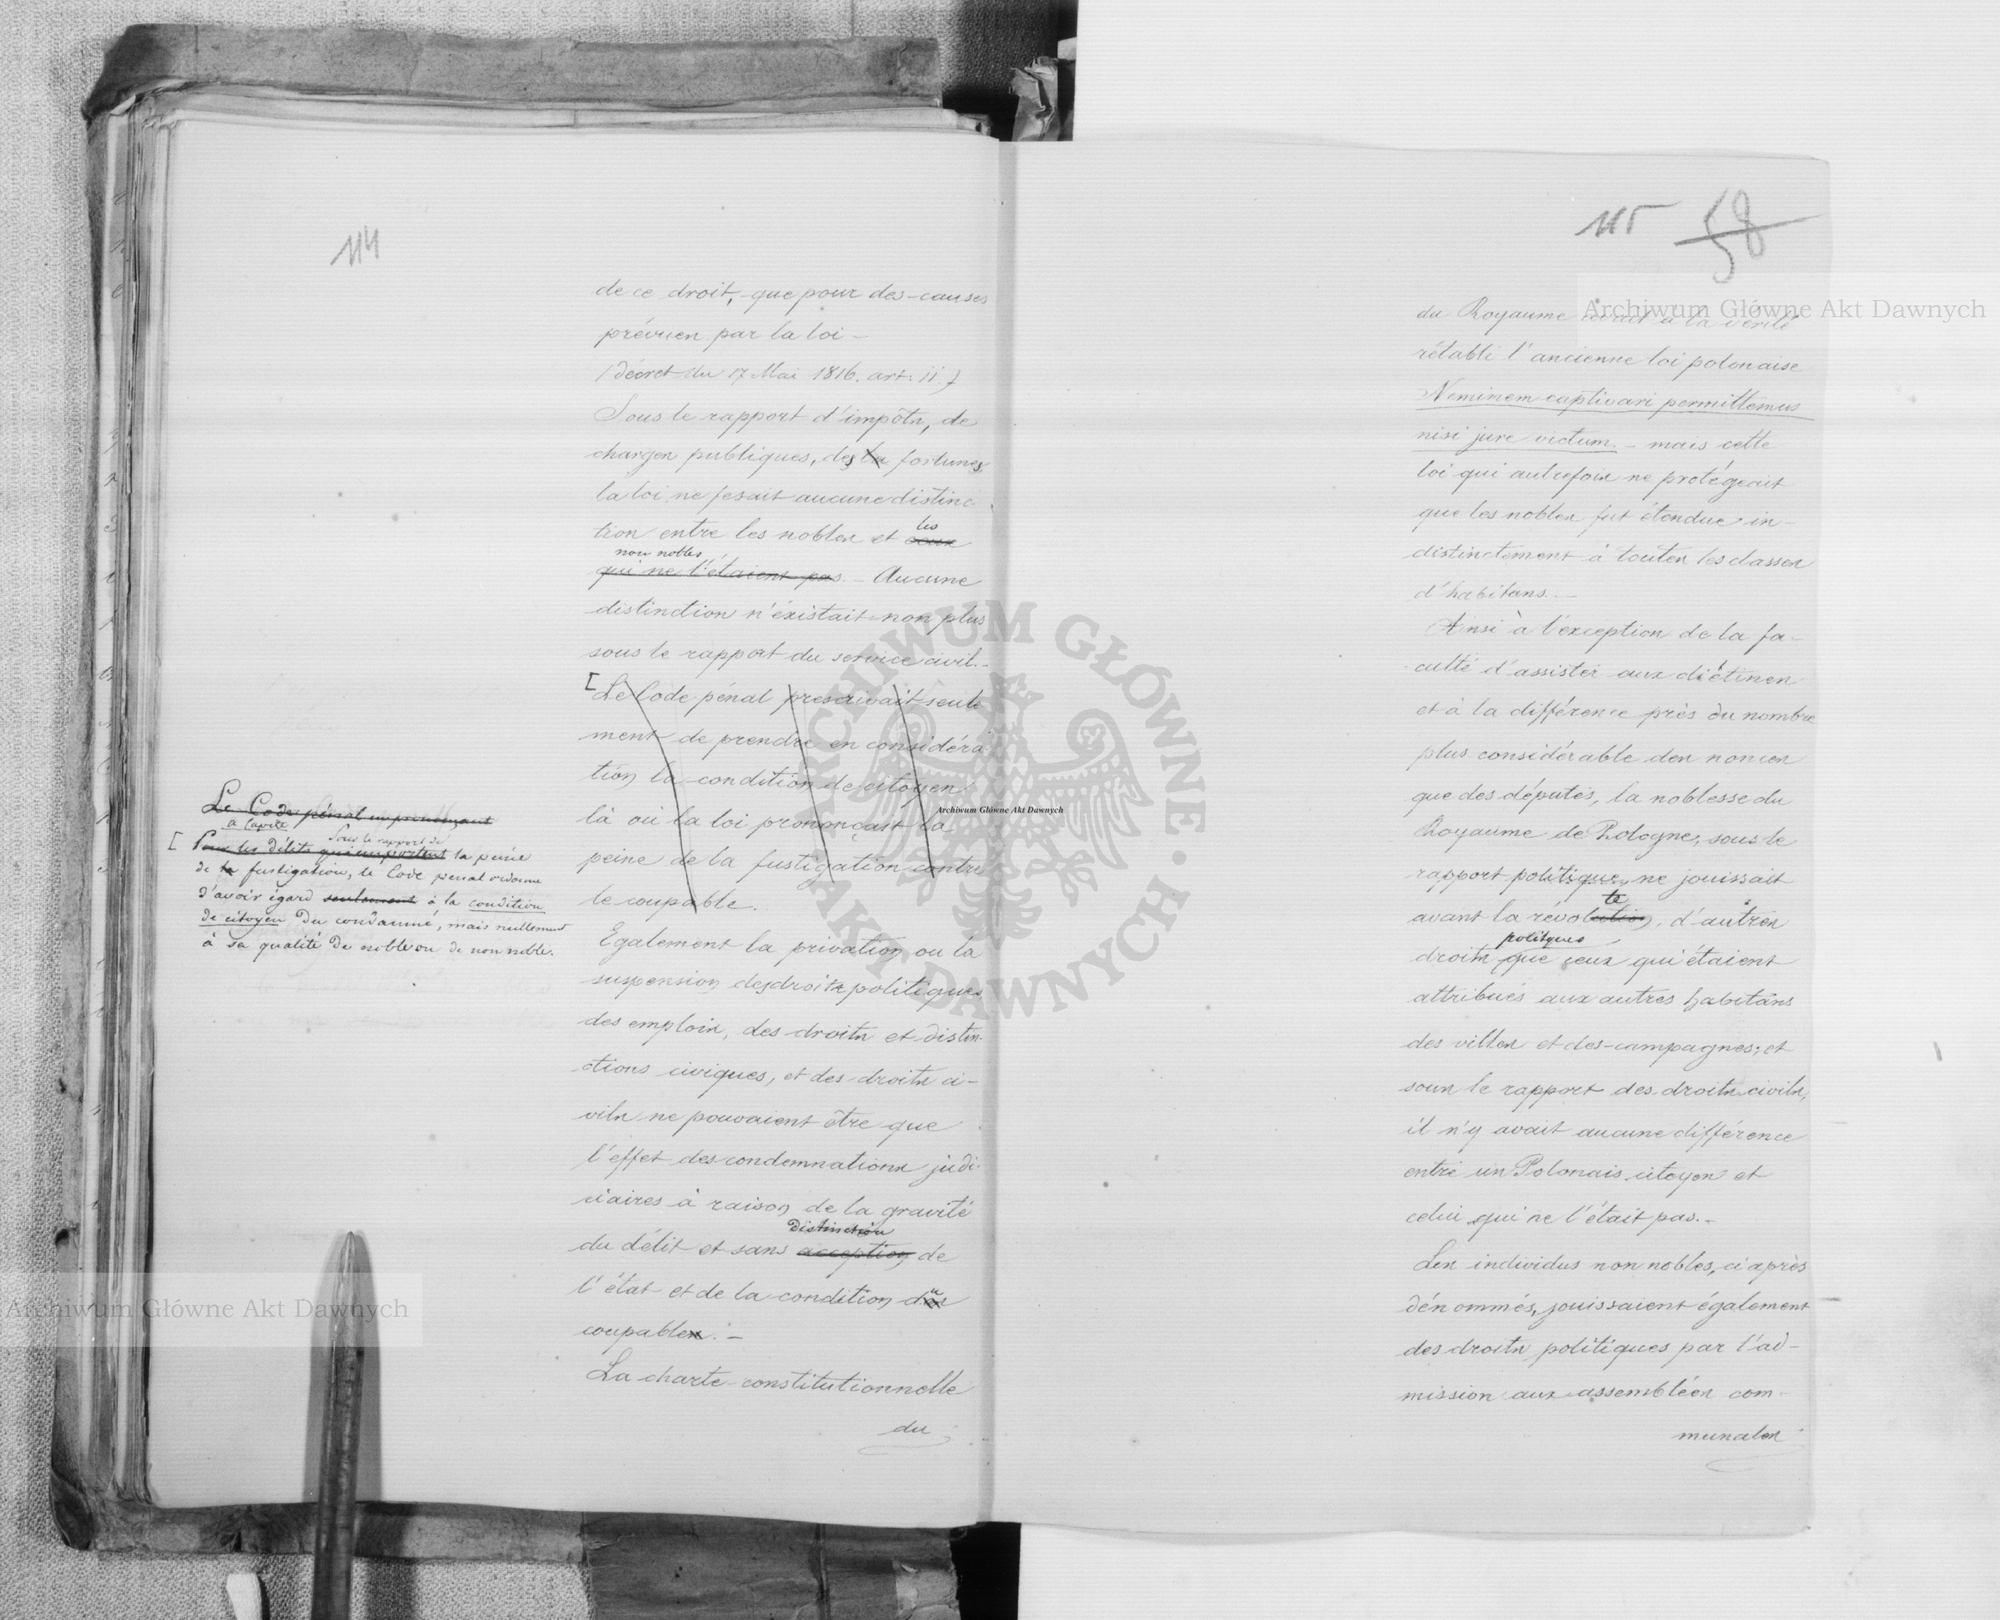 114
de ce droit, que pour des causes
prévues par la loi –
(décret du 17 Mai 1816. art. 11.)
Sous le rapport d'impôts, de
charges publiques, des la fortunes
la loi ne fesait aucune distinc-
tion entre les nobles et ceux les
qui ne l'étaient pas non nobles. – Aucune
distinction n'éxistait non plus
sous le rapport du service civil. –
[Le Code pénal prescrivait seule
ment de prendre en considéra
tion la condition de citoyen
là où la loi prononçait la
peine de la fustigation contre
le coupable.
Le Code pénal en prononçant
à Capite
[ Pour les délits qui emportent Sous le rapport de la peine
de la fustigation, le Code penal ordonne
d'avoir égard seulement à la condition
de citoyen du condamné, mais nullement
à sa qualité de noble ou de non noble.
Egalement la privation ou la
suspension des droits politiques
des emplois, des droits et distin-
ctions civiques, et des droits ci-
vils ne pouvaient être que
l'effet des condemnations judi-
ciaires à raison de la gravité
du délit et sans acception distinction de
l'état et de la condition du
coupable. –
La charte constitutionnelle
du
115 58
du Royaume avait à la vérité
rétabli l'ancienne loi polonaise
Neminem captivari permittemus
nisi jure victum. – mais cette
loi qui autrefois ne protégeait
que les nobles fut étendue in-
distinctement à toutes les classes
d'habitans. –
Ainsi à l'exception de la fa-
culté d'assister aux diétines
et à la différence près du nombre
plus considérable des nonces
que des députés, la noblesse du
Royaume de Pologne, sous le
rapport politique, ne jouissait
avant la révolution te, d'autres
droits politques que ceux qui étaient
attribués aux autres habitans
des villes et des campagnes; et
sous le rapport des droits civils,
il n'y avait aucune différence
entre un Polonais citoyen et
celui qui ne l'était pas. –
Les individus non nobles, ci après
dénommés, jouissaient également
des droits politiques par l'ad-
mission aux assemblées com-
munales
Archiwum Główne Akt Dawnych
ARCHIWUM GŁÓWNE AKT DAWNYCH
Archiwum Główne Akt Dawnych
Archiwum Główne Akt Dawnych